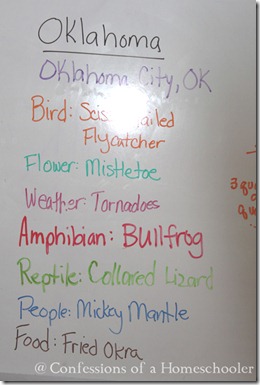 Oklahoma
Oklahoma City, OK
Bird: Scissortailed
Flycatcher
Flower: Mistletoe
Weather: Tornadoes
Amphibian: Bullfrog
Reptile: Collared Lizard
People: Mickey Mantle
Food: Fried Okra
@ Confessions of a Homeschooler